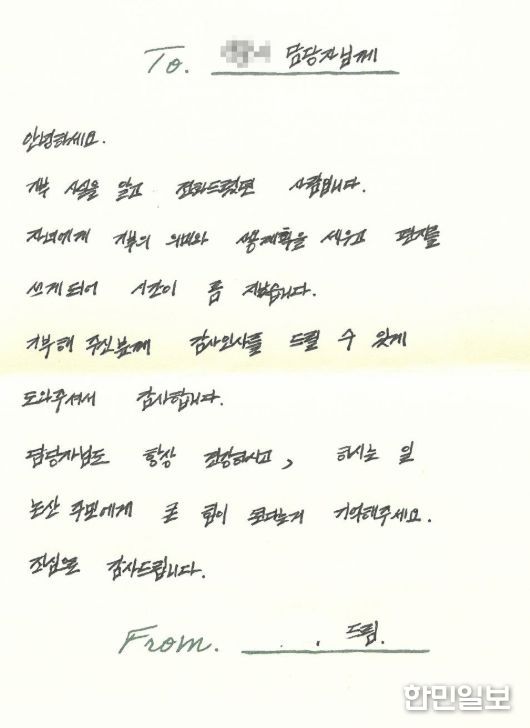 To. 담당자님께
안녕하세요.
기부 사실을 알고 전화드렸던 사람입니다.
자녀에게 기부의 의미와 사용계획을 세우고 편지를
쓰게되어 시간이 좀 지났습니다.
기부해 주신분께 감사인사를 드릴 수 있게
도와주셔서 감사합니다.
담당자님도 항상 건강하시고, 하시는 일
논산 주민에게 큰 힘이 된다는거 기억해주세요.
진심으로 감사드립니다.
From. 드림.
한민일보